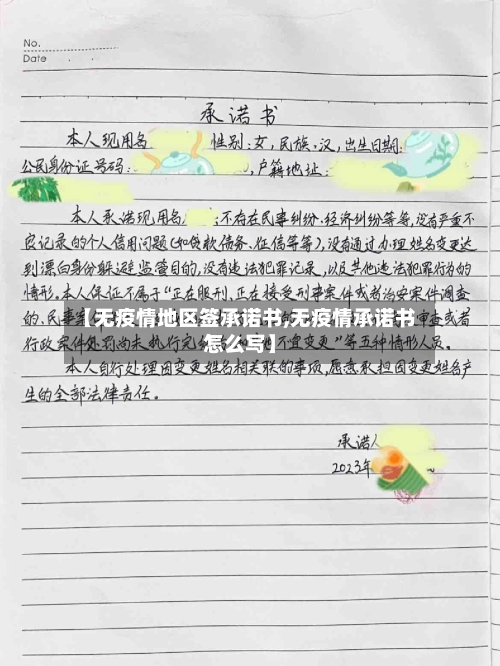 No.
Date
承诺书
本人现用名 性别:女,民族:汉,出生日期:
公民身份证号码: ,户籍地址:
本人承诺现用名 :不存在民事纠纷、经济纠纷等等,没有严重不
良记录的个人信用问题(如贷款债务、征信等等),没有通过办理姓名变更达
到漂白身份躲避监管目的,没有违法犯罪记录,以及其他违法犯罪行为的
情形。本人保证不属于“正在服刑、正在接受刑事案件或者治安案件调查
的、民事案
【无疫情地区签承诺书,无疫情承诺书
怎么写】
审查或者
行政案件处罚尚未执行完 不宜变更”等五种情形人员。
本人自行处理因变更姓名相关联的事项,愿意承担因变更姓名产
生的全部法律责任。
承诺人
2023年